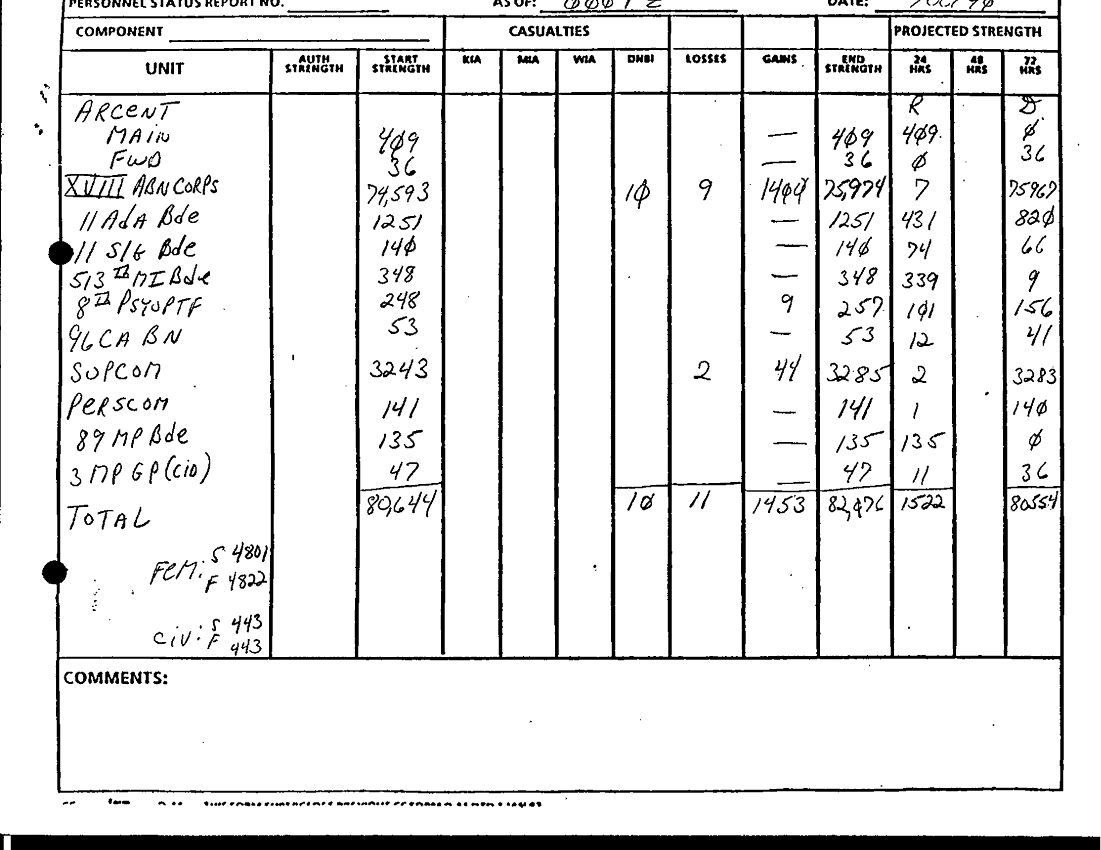 PERSONNEL STATUS REPORT NO. AS OF: 0001 Z DATE: 7 Oct 90
COMPONENT CASUALTIES PROJECTED STRENGTH
UNIT AUTH STRENGTH START STRENGTH KIA MIA WIA DNBI LOSSES GAINS END STRENGTH 24 HRS 48 HRS 72 HRS
ARCENT R D
MAIN 4φ9 — 4φ9 4φ9 φ
FWD 36 — 36 φ 36
XVIII ABN CORPS 74,593 1φ 9 14φφ 75,974 7 75967
11 AdA Bde 1251 — 1251 431 82φ
11 SIG Bde 14φ — 14φ 74 66
513th MI Bde 348 — 348 339 9
8th PSYOPTF 248 9 257 1φ1 156
96 CA BN 53 — 53 12 41
SUPCOM 3243 2 44 3285 2 3283
PERSCOM 141 — 141 1 14φ
89 MP Bde 135 — 135 135 φ
3 MP GP (CID) 47 — 47 11 36
TOTAL 8φ,644 1φ 11 1453 82,φ76 1522 8φ554
FEM: S 4801
F 4822
CIV: S 443
F 443
COMMENTS: